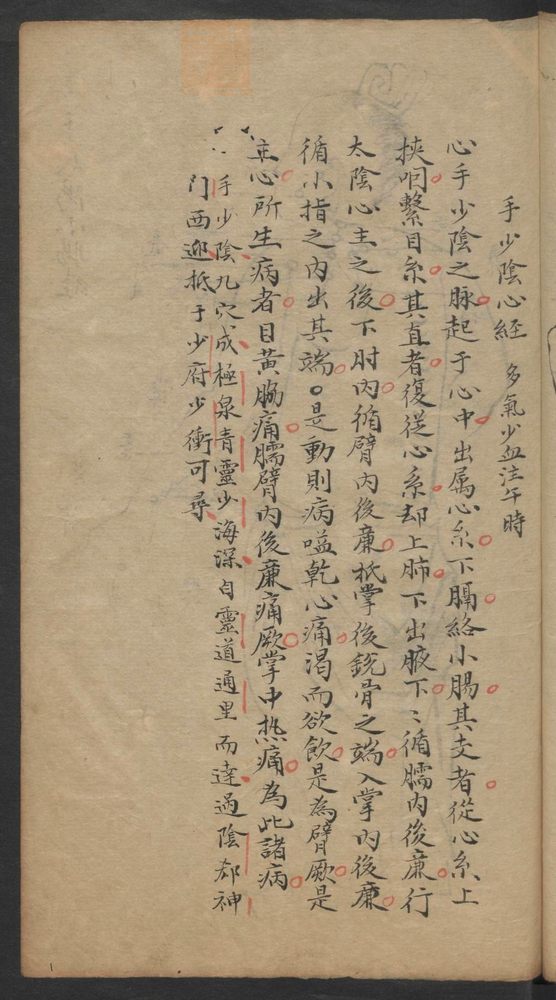 手少陰心經 多氣少血注午時
心手少陰之脉起于心中出属心系下膈絡小腸其支者從心系上
挾咽繫目系其直者復從心系却上肺下出腋下〻循臑内後廉行
太陰心主之後下肘内循臂内後廉抵掌後銳骨之端入掌内後廉
循小指之内出其端○是動則病嗌乾心痛渴而欲飲是為臂厥是
主心所生病者目黃胸痛臑臂内後廉痛厥掌中热痛為此諸病
手少陰九穴成極泉青灵少海深自靈道通里而達過陰郄神
門西迎抵于少府少衝可尋